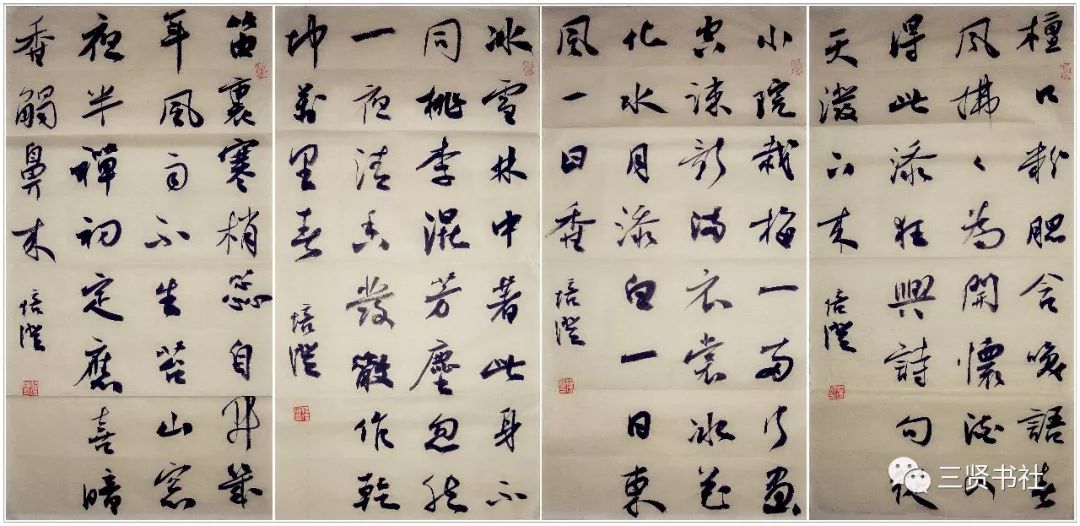 檀口粉腮含咲語春
風拂々為開懷酒人
得此添狂興詩句夜
天潑下来
培澄
小院栽梅一兩行畫
空疎影滿衣裳冰花
化水月添白一日東
風一日香
培澄
冰雪林中著此身不
同桃李混芳塵忽然
一夜清香發散作乾
坤萬里春
培澄
笛裏寒梢蕊自开幾
年風雨不生苔山窓
夜半禪初定應喜暗
香觸鼻来
培澄
三贤书社